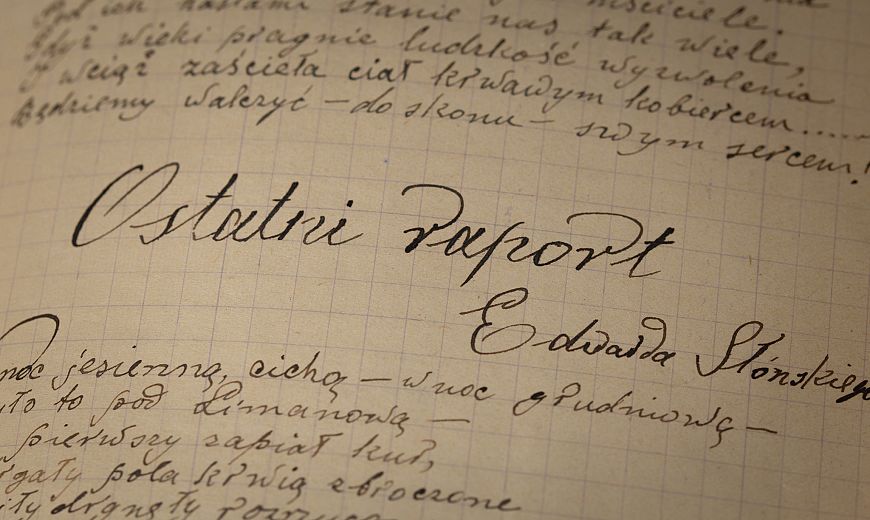 stanie nas tak wiele,
Gdyż wieki pragnie ludzkość wyzwolenia
I wciąż zaścieła ciał krwawym kobiercem.....
Będziemy walczyć – do skonu – swym sercem!
Ostatni raport
Edwarda Słońskiego
noc jesienną, cichą – w noc grudniową –
to pod Limanową –
pierwszy zapiał kur,
pola krwią zbroczone
drgnęły